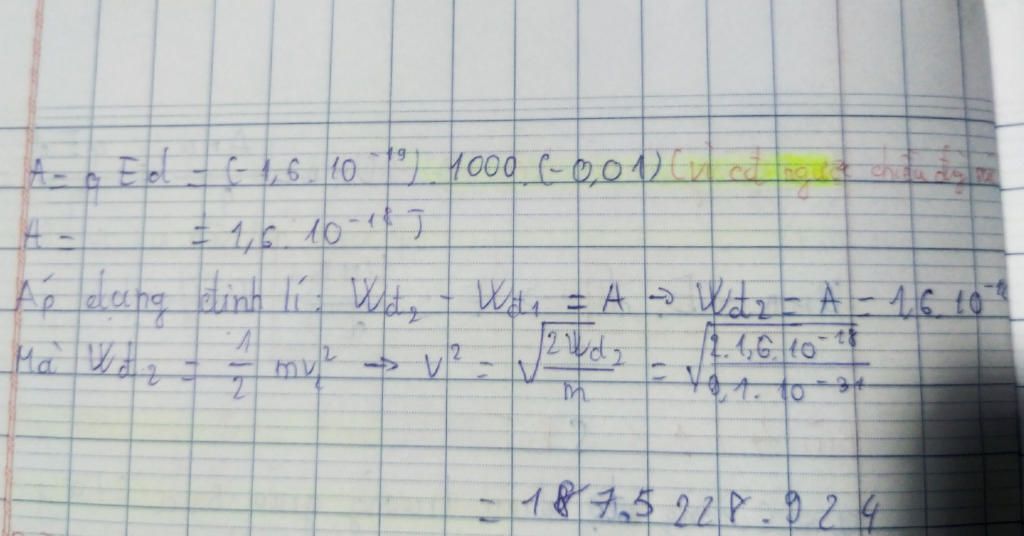 A = qEd = (-1,6. 10⁻¹⁹). 1000. (-0,01) (vì cđ ngược chiều đg
A = = 1,6. 10⁻¹⁸ J
Áp dụng định lí: Wđ₂ - Wđ₁ = A → Wđ₂ = A = 1,6. 10⁻¹⁸
Mà Wđ₂ = 1/2 mv₂² → v² = √(2Wđ₂/m) = √(2. 1,6. 10⁻¹⁸/9,1. 10⁻³¹)
= 187.5 228. 924